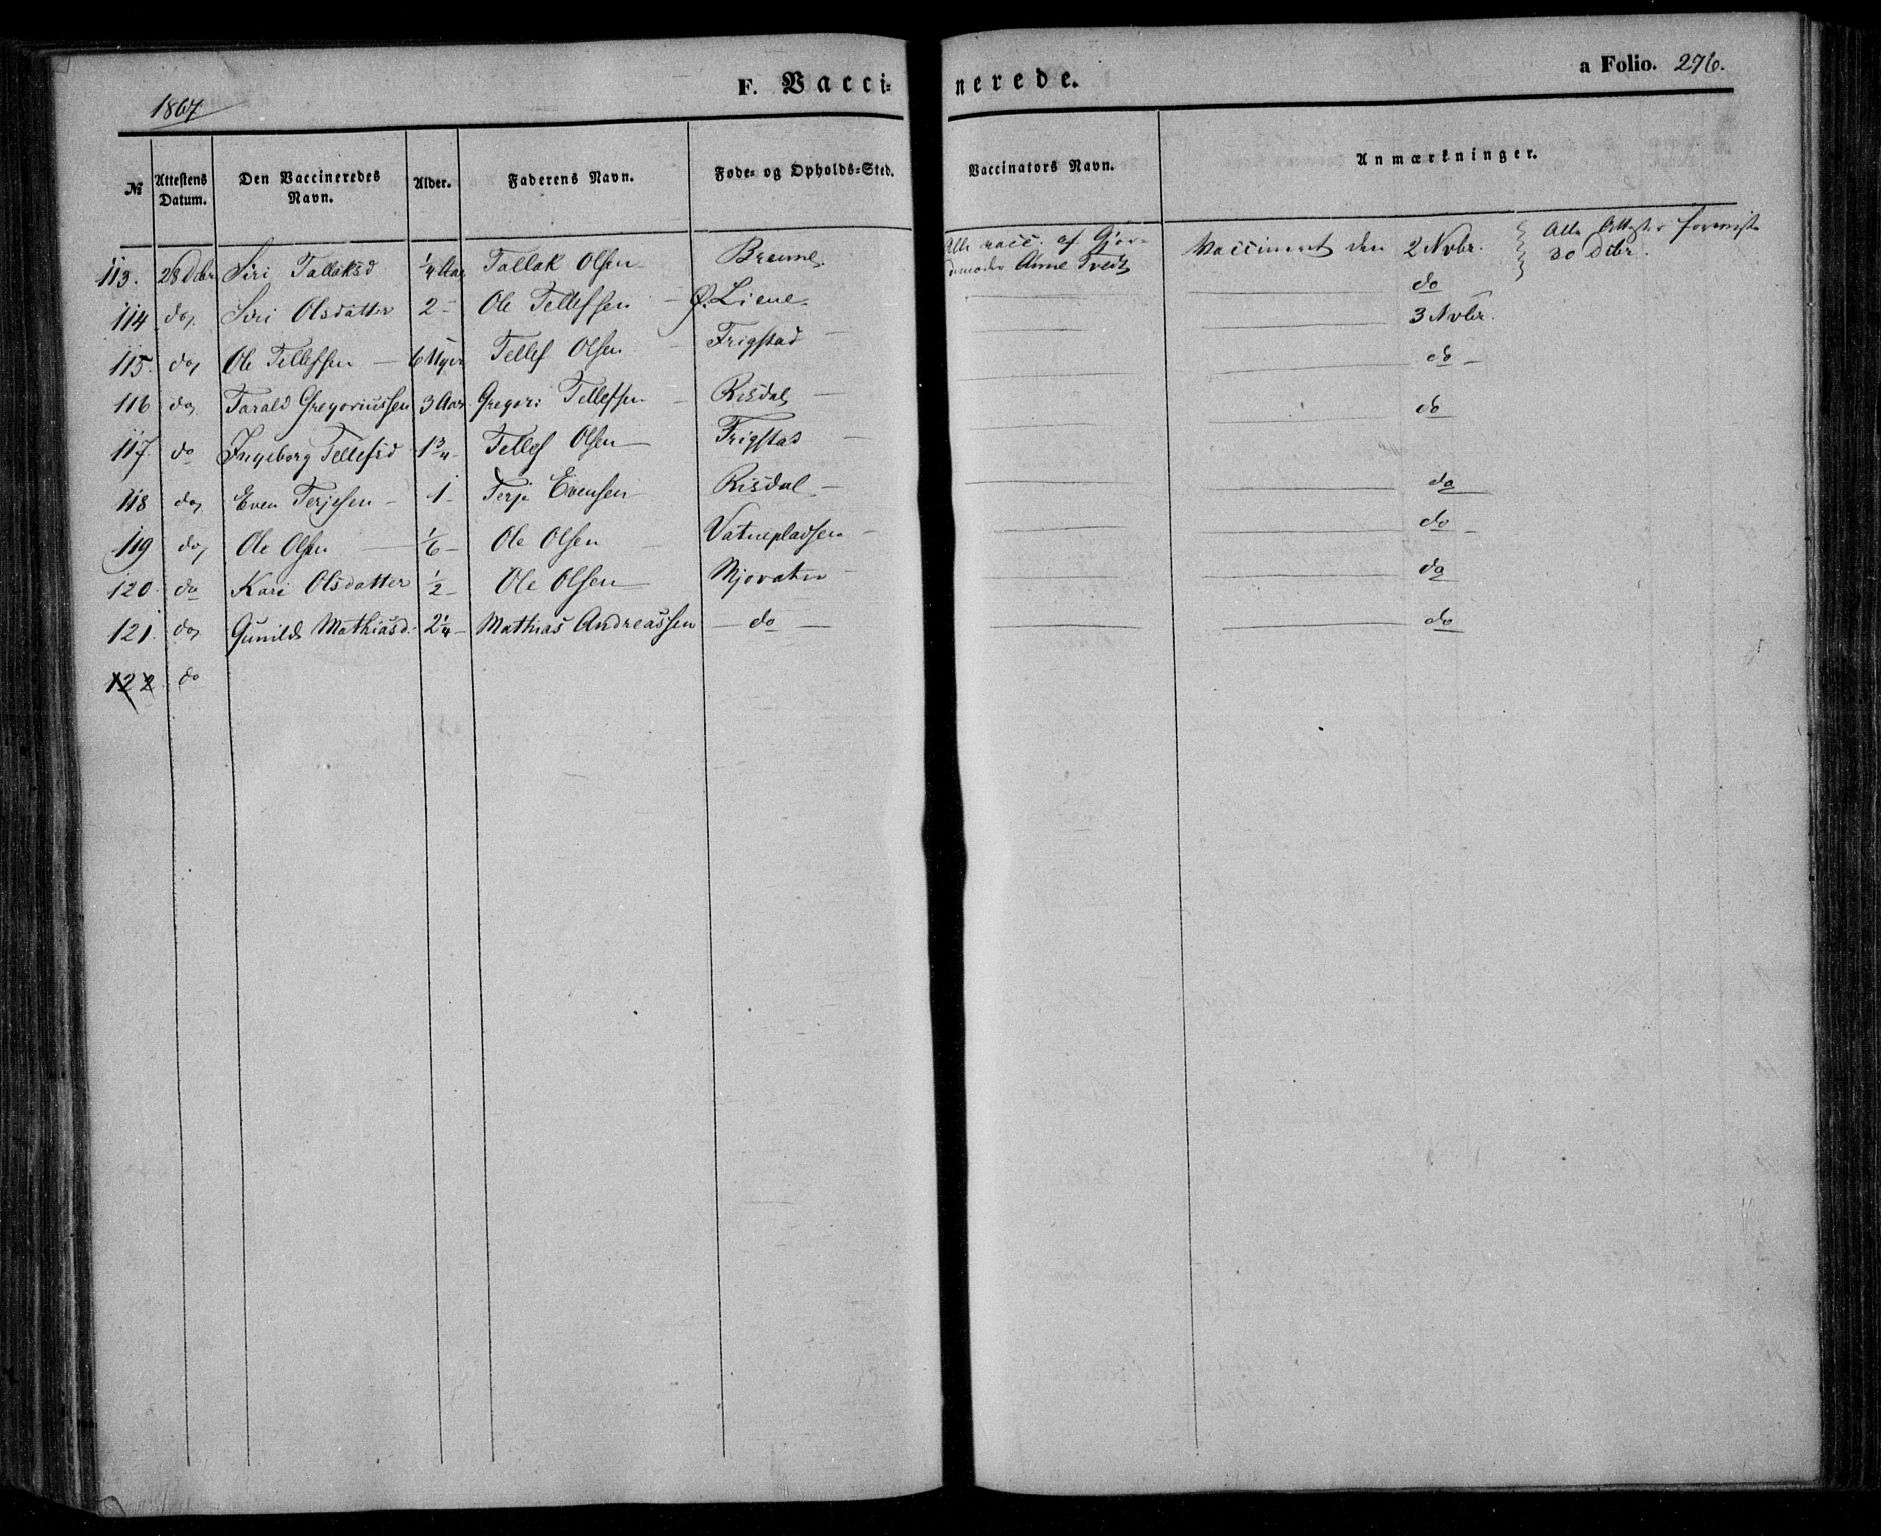 1867
F. Vaccinerede.
a Folio. 276.
№ | Attestens Datum. | Den Vaccineredes Navn. | Alder. | Faderens Navn. | Føde- og Opholds-Sted. | Vaccinators Navn. | Anmærkninger.
113. | 28 Dcbr | Siri Tallaksd | 1/4 Aar | Tallak Olsen | | Alle vacc. af Gjordemoder Anne Tvedt | Vaccineret den 2 Nvbr. | Alle Attester 30 Dcbr.
114 | do, | Siri Olsdatter | 2 – | Ole Tellefsen – | Ø. Liene | | do
115. | do, | Ole Tellefsen – | 6 Uger | Tellef Olsen – | Frigstad – | | 3 Nvbr.
116 | do, | Tarald Gregoriussen | 3 Aar | Gregori Tellefsen – | Risdal – | | do –
117. | do | Ingeborg Tellefsd | 1 3/4 – | Tellef Olsen – | Frigstad – | | do
118 | do, | Even Terjesen – | 1 – | Terje Evensen | Risdal – | | do
119 | do, | Ole Olsen – | 1/6 – | Ole Olsen – | Vatnepladsen – | | do –
120. | do | Kari Olsdatter | 1/2 – | Ole Olsen – | Mjovatn – | | do
121. | do, | Gunild Mathiasd. | 2 1/4 – | Mathias Andreassen | – do – | | do
122 | do